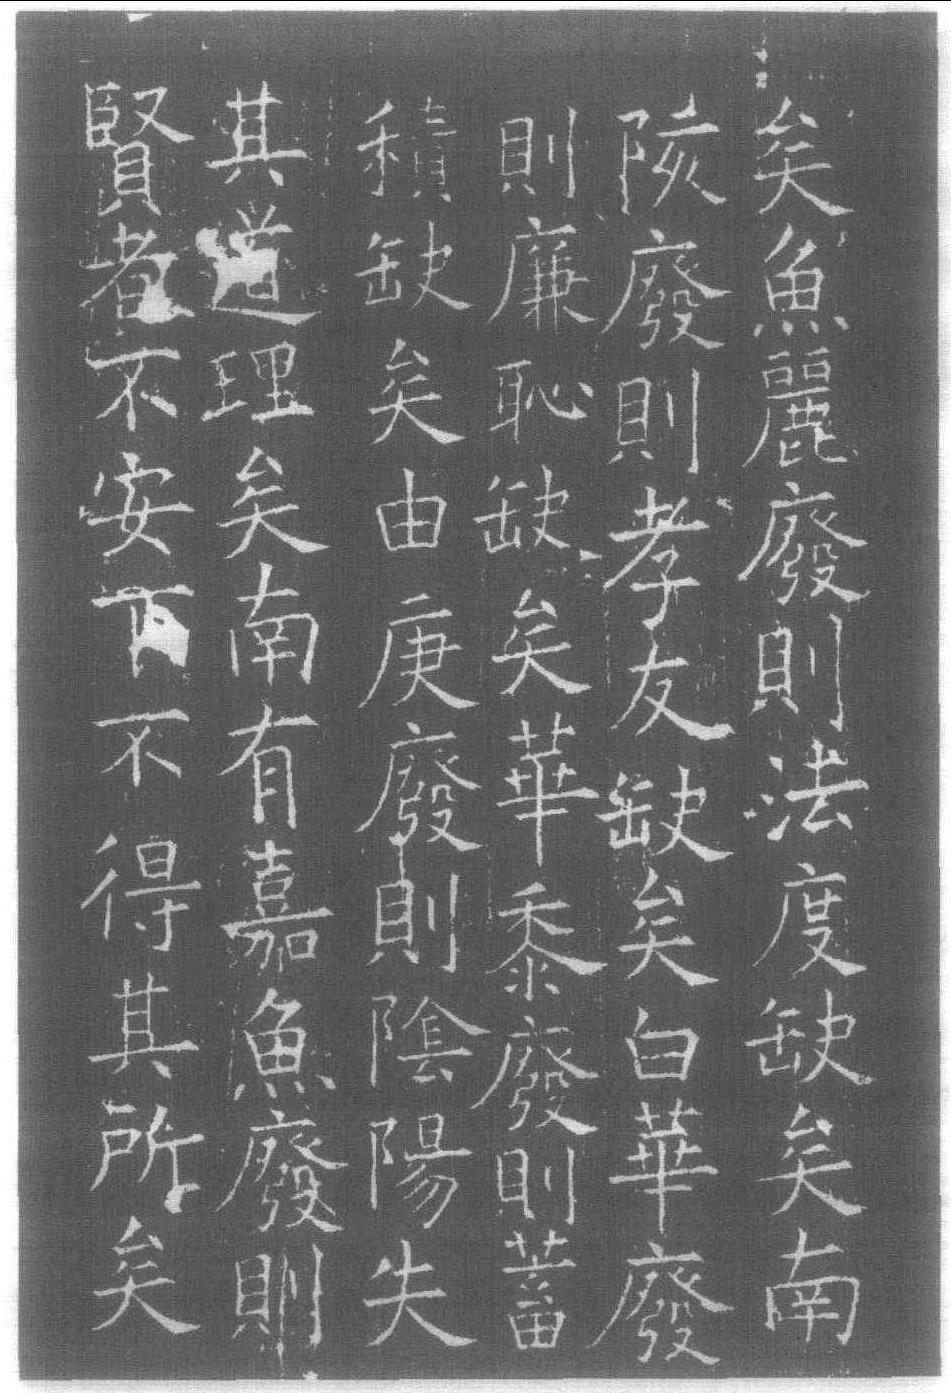 矣魚麗廢則法度缺矣南
陔廢則孝友缺矣白華廢
則廉恥缺矣華黍廢則蓄
積缺矣由庚廢則陰陽失
其道理矣南有嘉魚廢則
賢者不安下不得其所矣